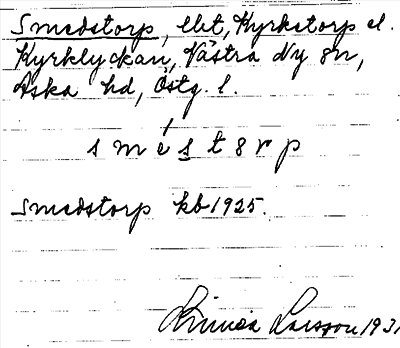 Smedstorp, ebt, Kyrkstorp el.
Kyrklyckan, Västra Ny sn,
Aska hd, Östg. l.
s m e s t o r p
Smedstorp kb 1925.
Linnea Larsson 1931